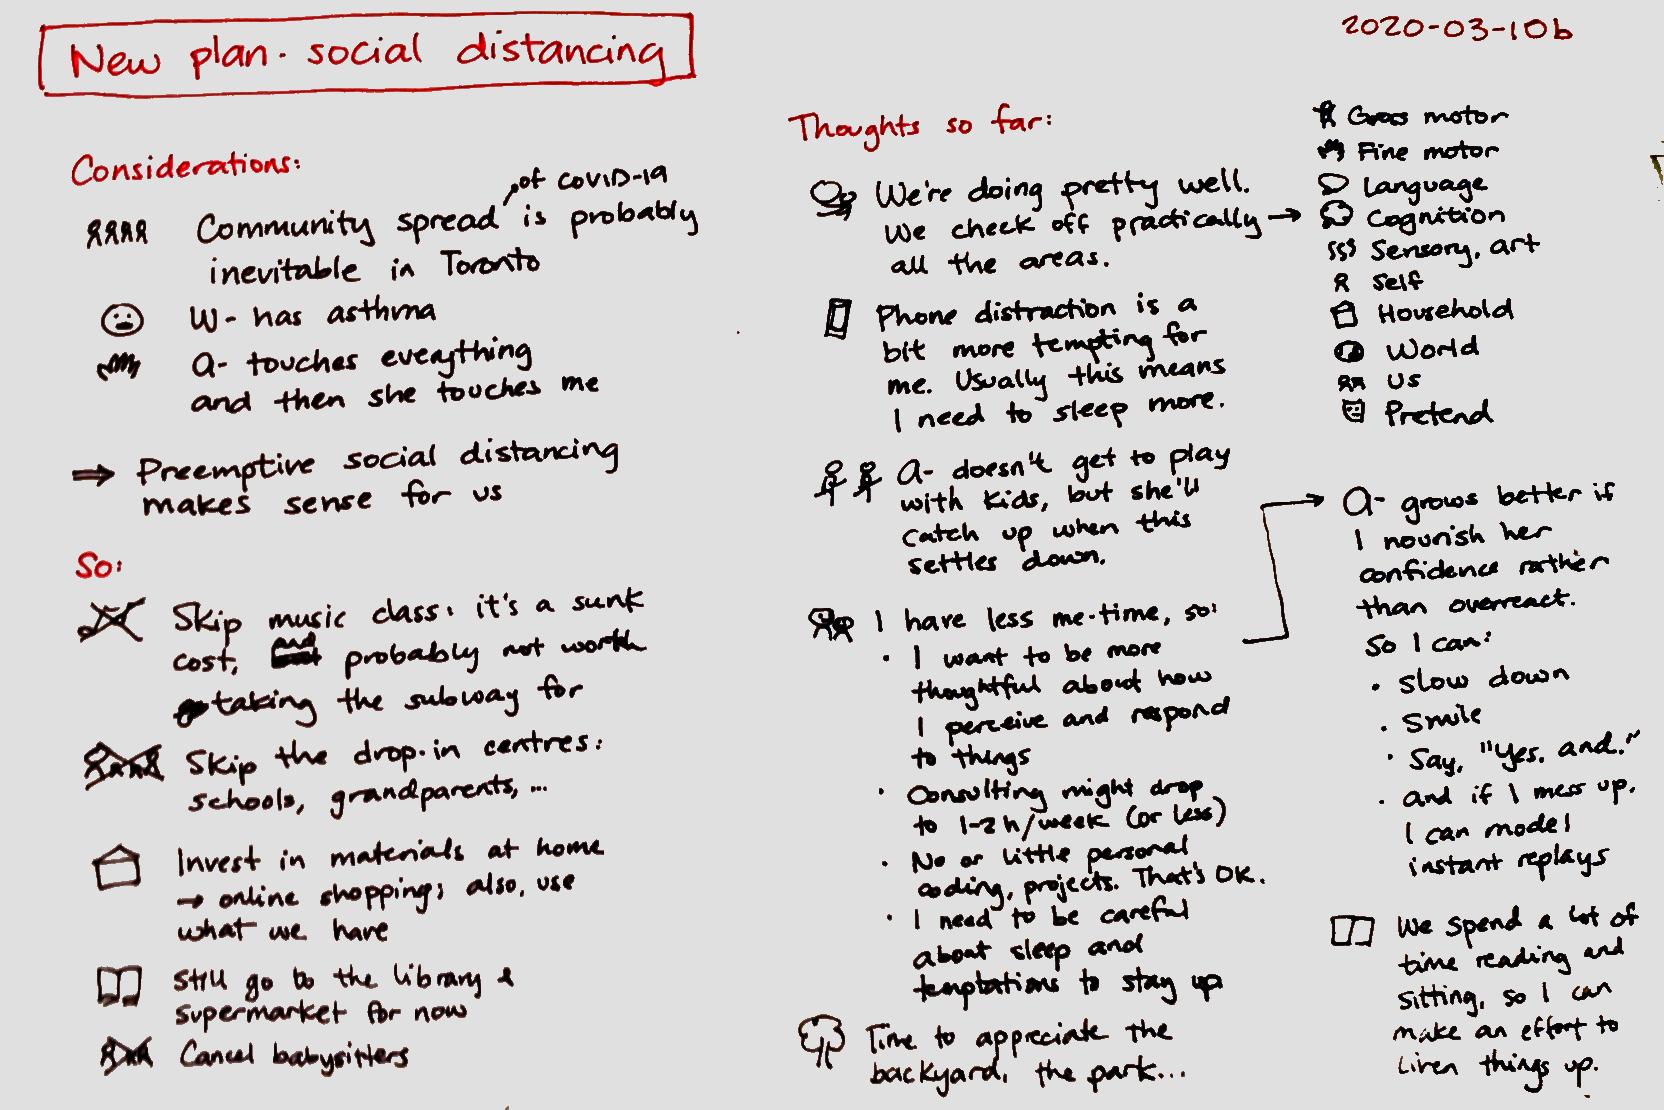 New plan. social distancing
2020-03-10b
Considerations:
of COVID-19
Community spread is probably
inevitable in Toronto
W- has asthma
A- touches everything
and then she touches me
⇒ Preemptive social distancing
makes sense for us
So:
Skip music class: it's a sunk
cost, and probably not worth
taking the subway for
Skip the drop-in centres:
schools, grandparents, ...
Invest in materials at home
→ online shopping; also, use
what we have
Still go to the library &
supermarket for now
Cancel babysitters
Thoughts so far:
We're doing pretty well.
We check off practically →
all the areas.
Gross motor
Fine motor
Language
Cognition
Sensory, art
Self
Household
World
Us
Pretend
Phone distraction is a
bit more tempting for
me. Usually this means
I need to sleep more.
A- doesn't get to play
with kids, but she'll
catch up when this
settles down.
I have less me-time, so:
• I want to be more
thoughtful about how
I perceive and respond
to things
• Consulting might drop
to 1-2h/week (or less)
• No or little personal
coding, projects. That's OK.
• I need to be careful
about sleep and
temptations to stay up
Time to appreciate the
backyard, the park...
A- grows better if
I nourish her
confidence rather
than overreact.
So I can:
• Slow down
• Smile
• Say, "Yes, and."
• and if I mess up,
I can model
instant replays
We spend a lot of
time reading and
sitting, so I can
make an effort to
liven things up.